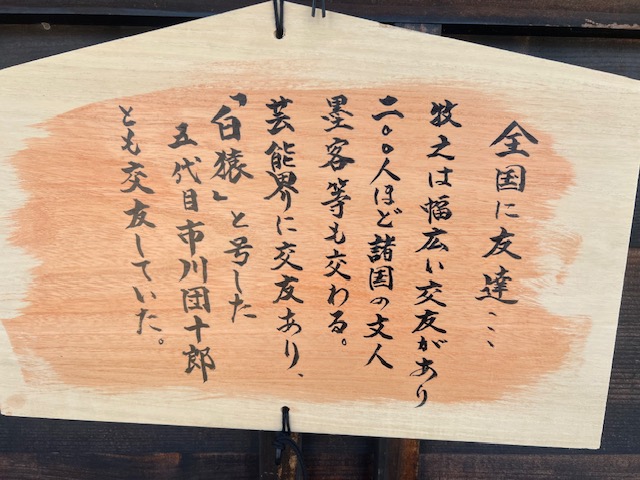 全国に友達…
牧之は幅広い交友があり
二〇〇人ほど諸国の文人
墨客等も交わる。
芸能界に交友あり、
「白猿」と号した
五代目市川団十郎
とも交友していた。